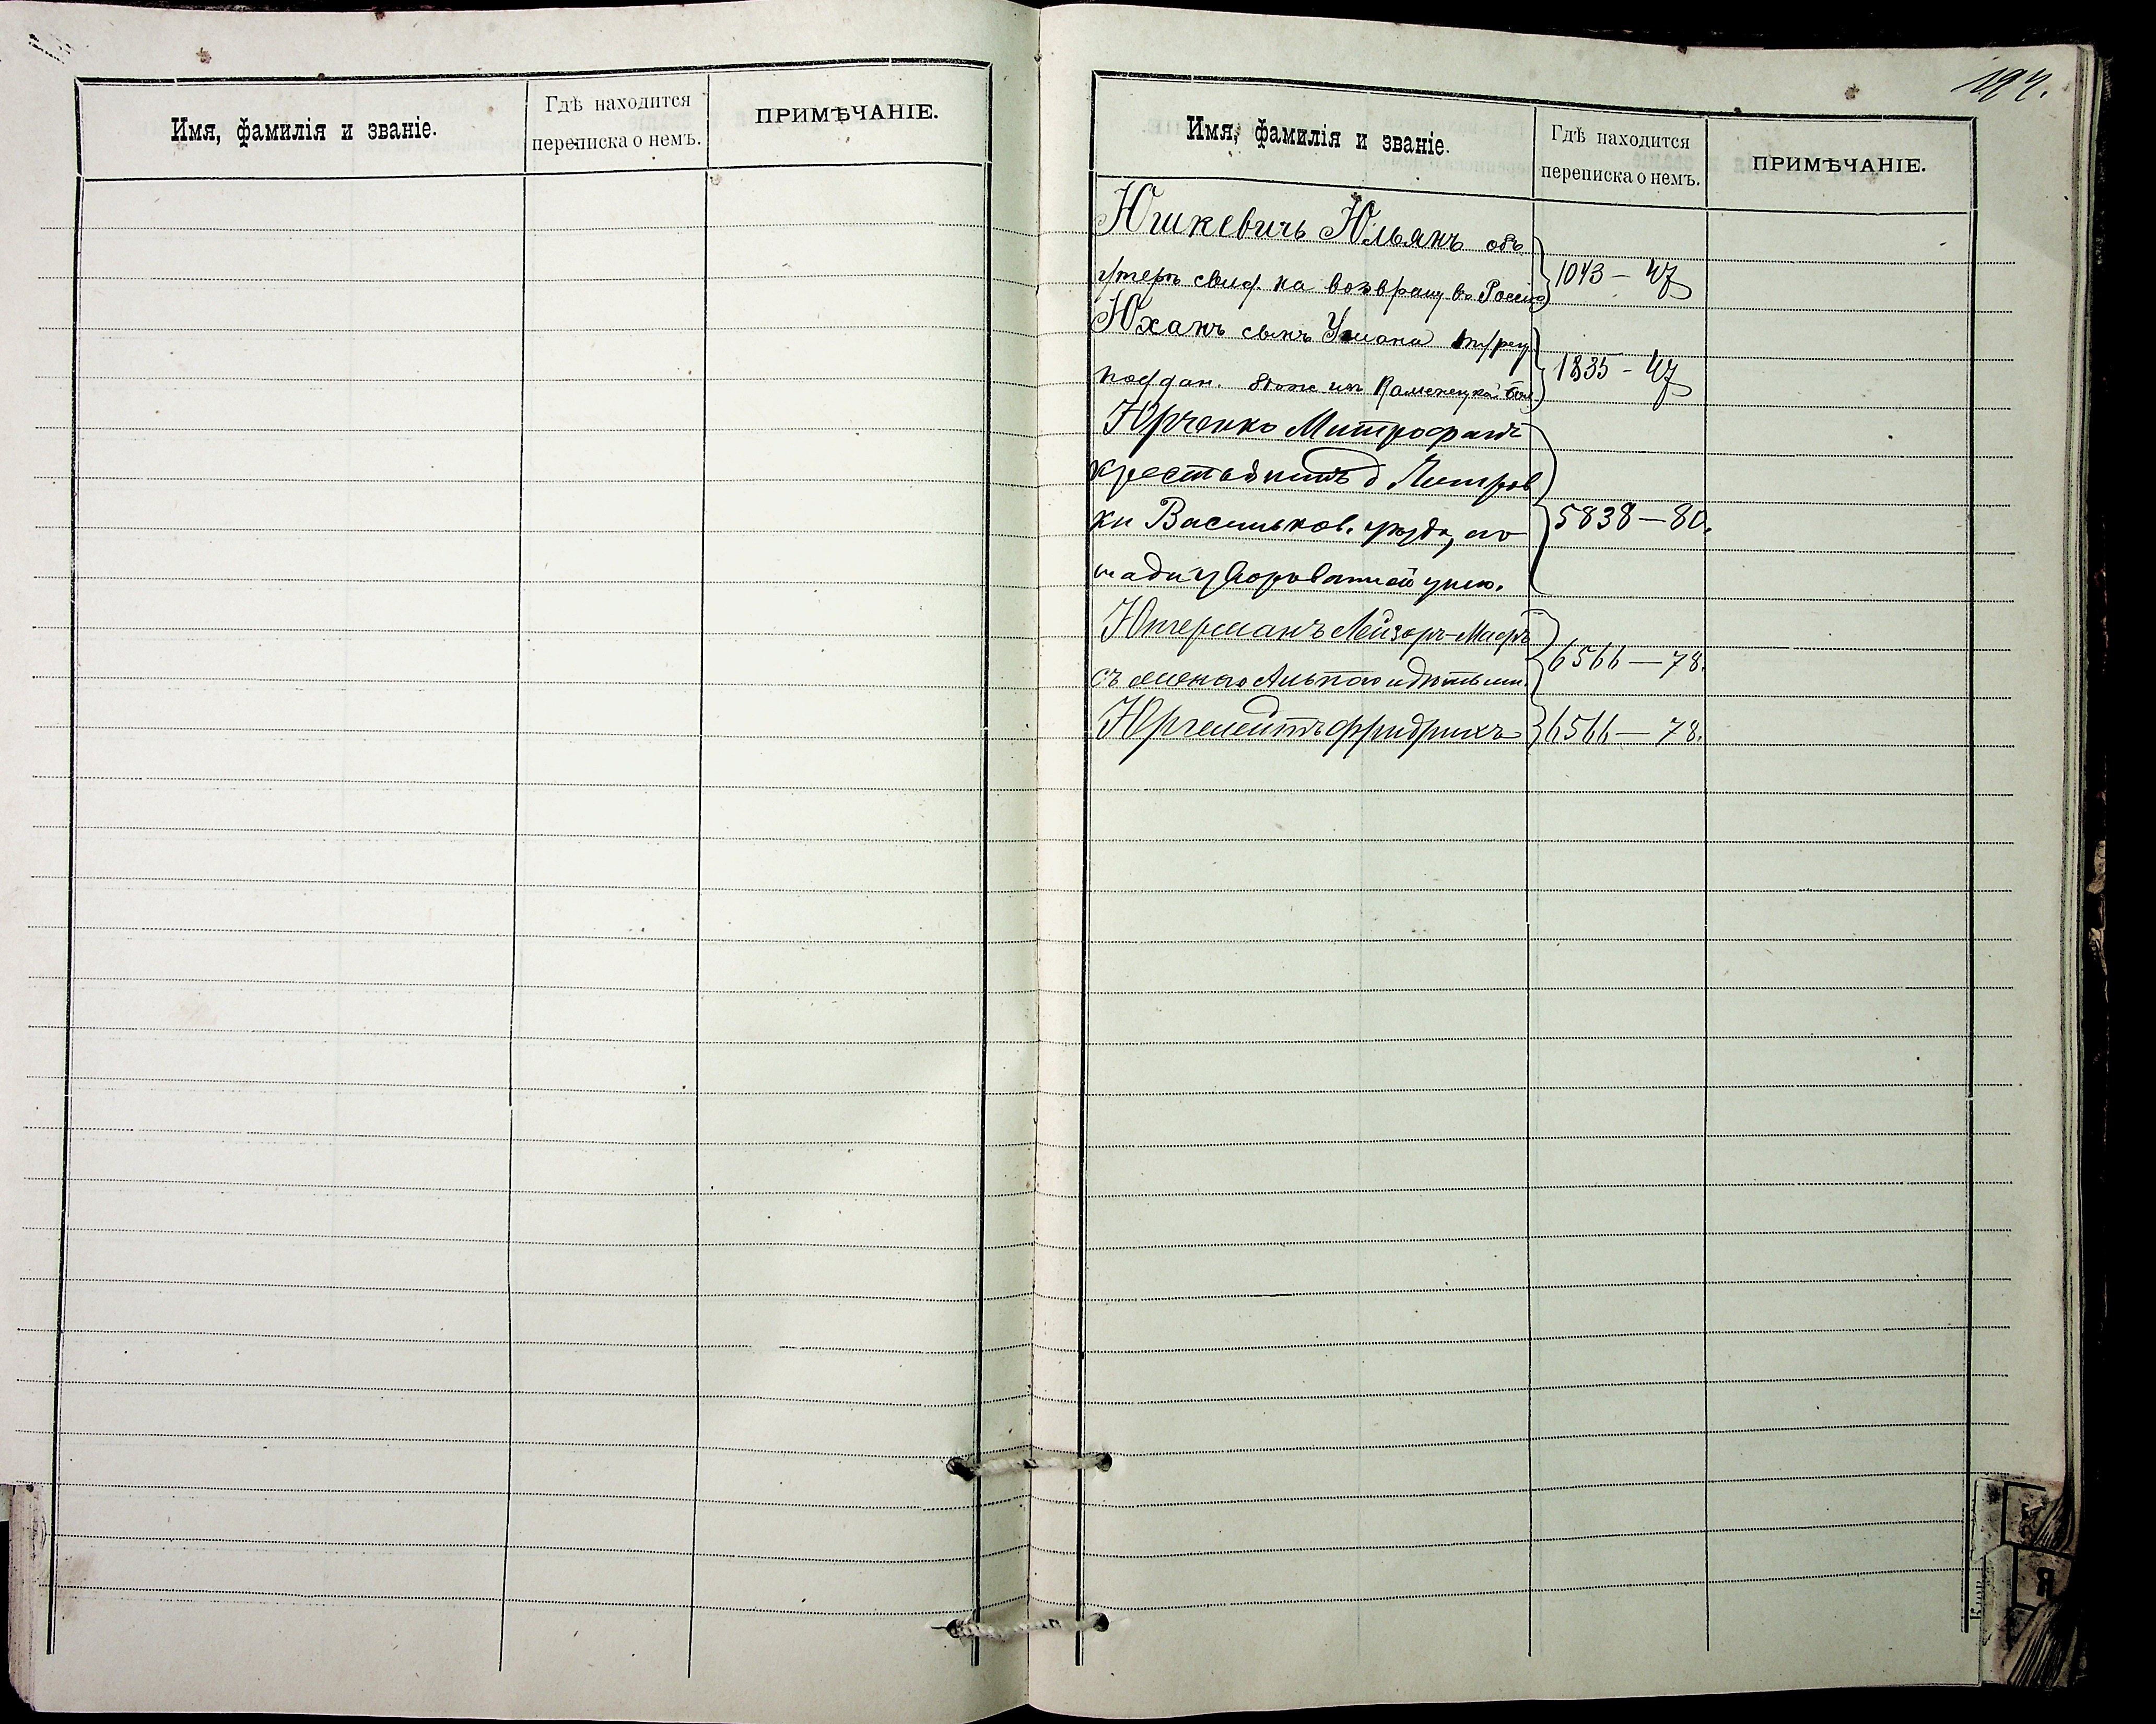 Имя, фамилія и званіе.
Гдѣ находится
переписка о немъ.
ПРИМѢЧАНІЕ.
194.
Имя, фамилія и званіе.
Гдѣ находится
переписка о немъ.
ПРИМѢЧАНІЕ.
Юшкевичъ Юльянъ объ
утерѣ свид. на возвращ въ Россію
1043 — 47
Юханъ сынъ Турец
поддан. изъ Каменецка
1835 - 47
Юрченко Митрофанъ
крестьянинъ д Петров
ки Васильков. уѣзда, ло
шади уворованной у него.
5838 — 80.
Юнгерманъ Лейзоръ-Маеръ
съ женою и дѣтьми.
6566 — 78.
Юргелейтъ Фридрихъ
6566 — 78.
Я